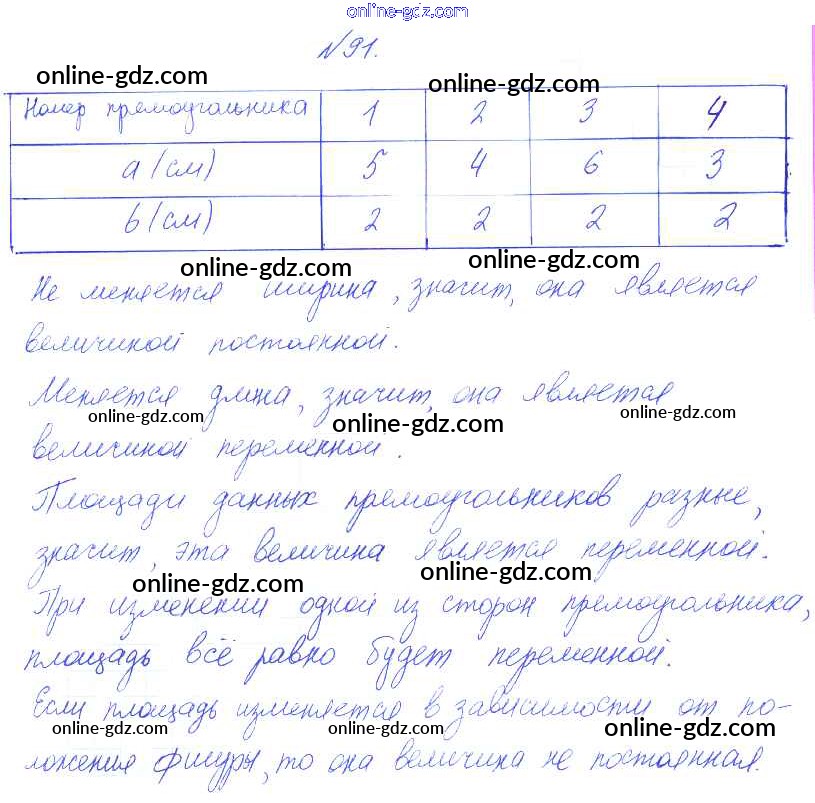 online-gdz.com
№91.
online-gdz.com online-gdz.com
Номер прямоугольника 1 2 3 4
a (см) 5 4 6 3
b (см) 2 2 2 2
online-gdz.com online-gdz.com
Не меняется ширина, значит, она является
величиной постоянной.
Меняется длина, значит, она является
online-gdz.com online-gdz.com online-gdz.com
величиной переменной.
Площади данных прямоугольников разные,
значит, эта величина является переменной.
online-gdz.com online-gdz.com
При изменении одной из сторон прямоугольника,
площадь всё равно будет переменной.
Если площадь изменяется в зависимости от по-
online-gdz.com online-gdz.com online-gdz.com
ложения фигуры, то она величина не постоянная.